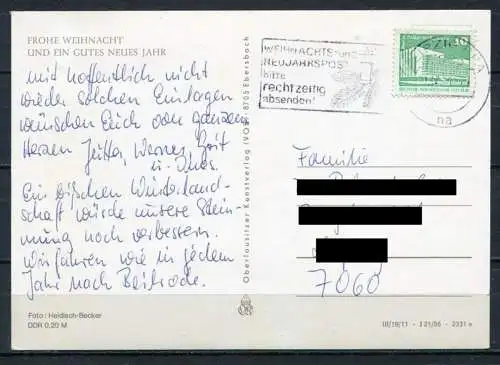 FROHE WEIHNACHT
UND EIN GUTES NEUES JAHR
mit hoffentlich nicht
wieder solchen Einlagen
wünschen Euch von ganzem
Herzen Jutta, Werner,
u. Ines.
Ein bißchen Winterland-
schaft würde unsere Stim-
mung noch verbessern.
Wir fahren wie in jedem
Jahr nach
Foto: Heidisch-Becker
DDR 0,20 M
Oberlausitzer Kunstverlag (VOB) 8705 Ebersbach
WEIHNACHTS- und
NEUJAHRSPOST
bitte
rechtzeitig
absenden!
10
na
Familie
7060
III/19/11 - J 21/86 - 2331 e